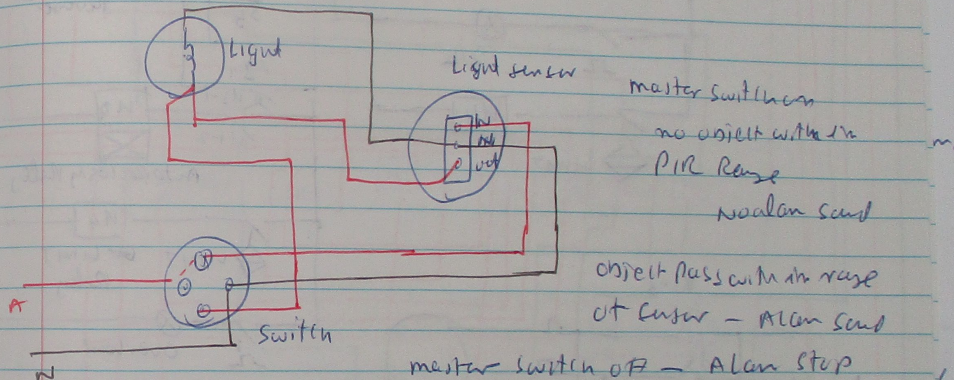 Light
Light sensor
IN
N
out
master switch on
no object with in
PIR Range
No alam sound
object pass with in range
of sensor – Alam sound
A
Switch
master switch off – Alam stop
N